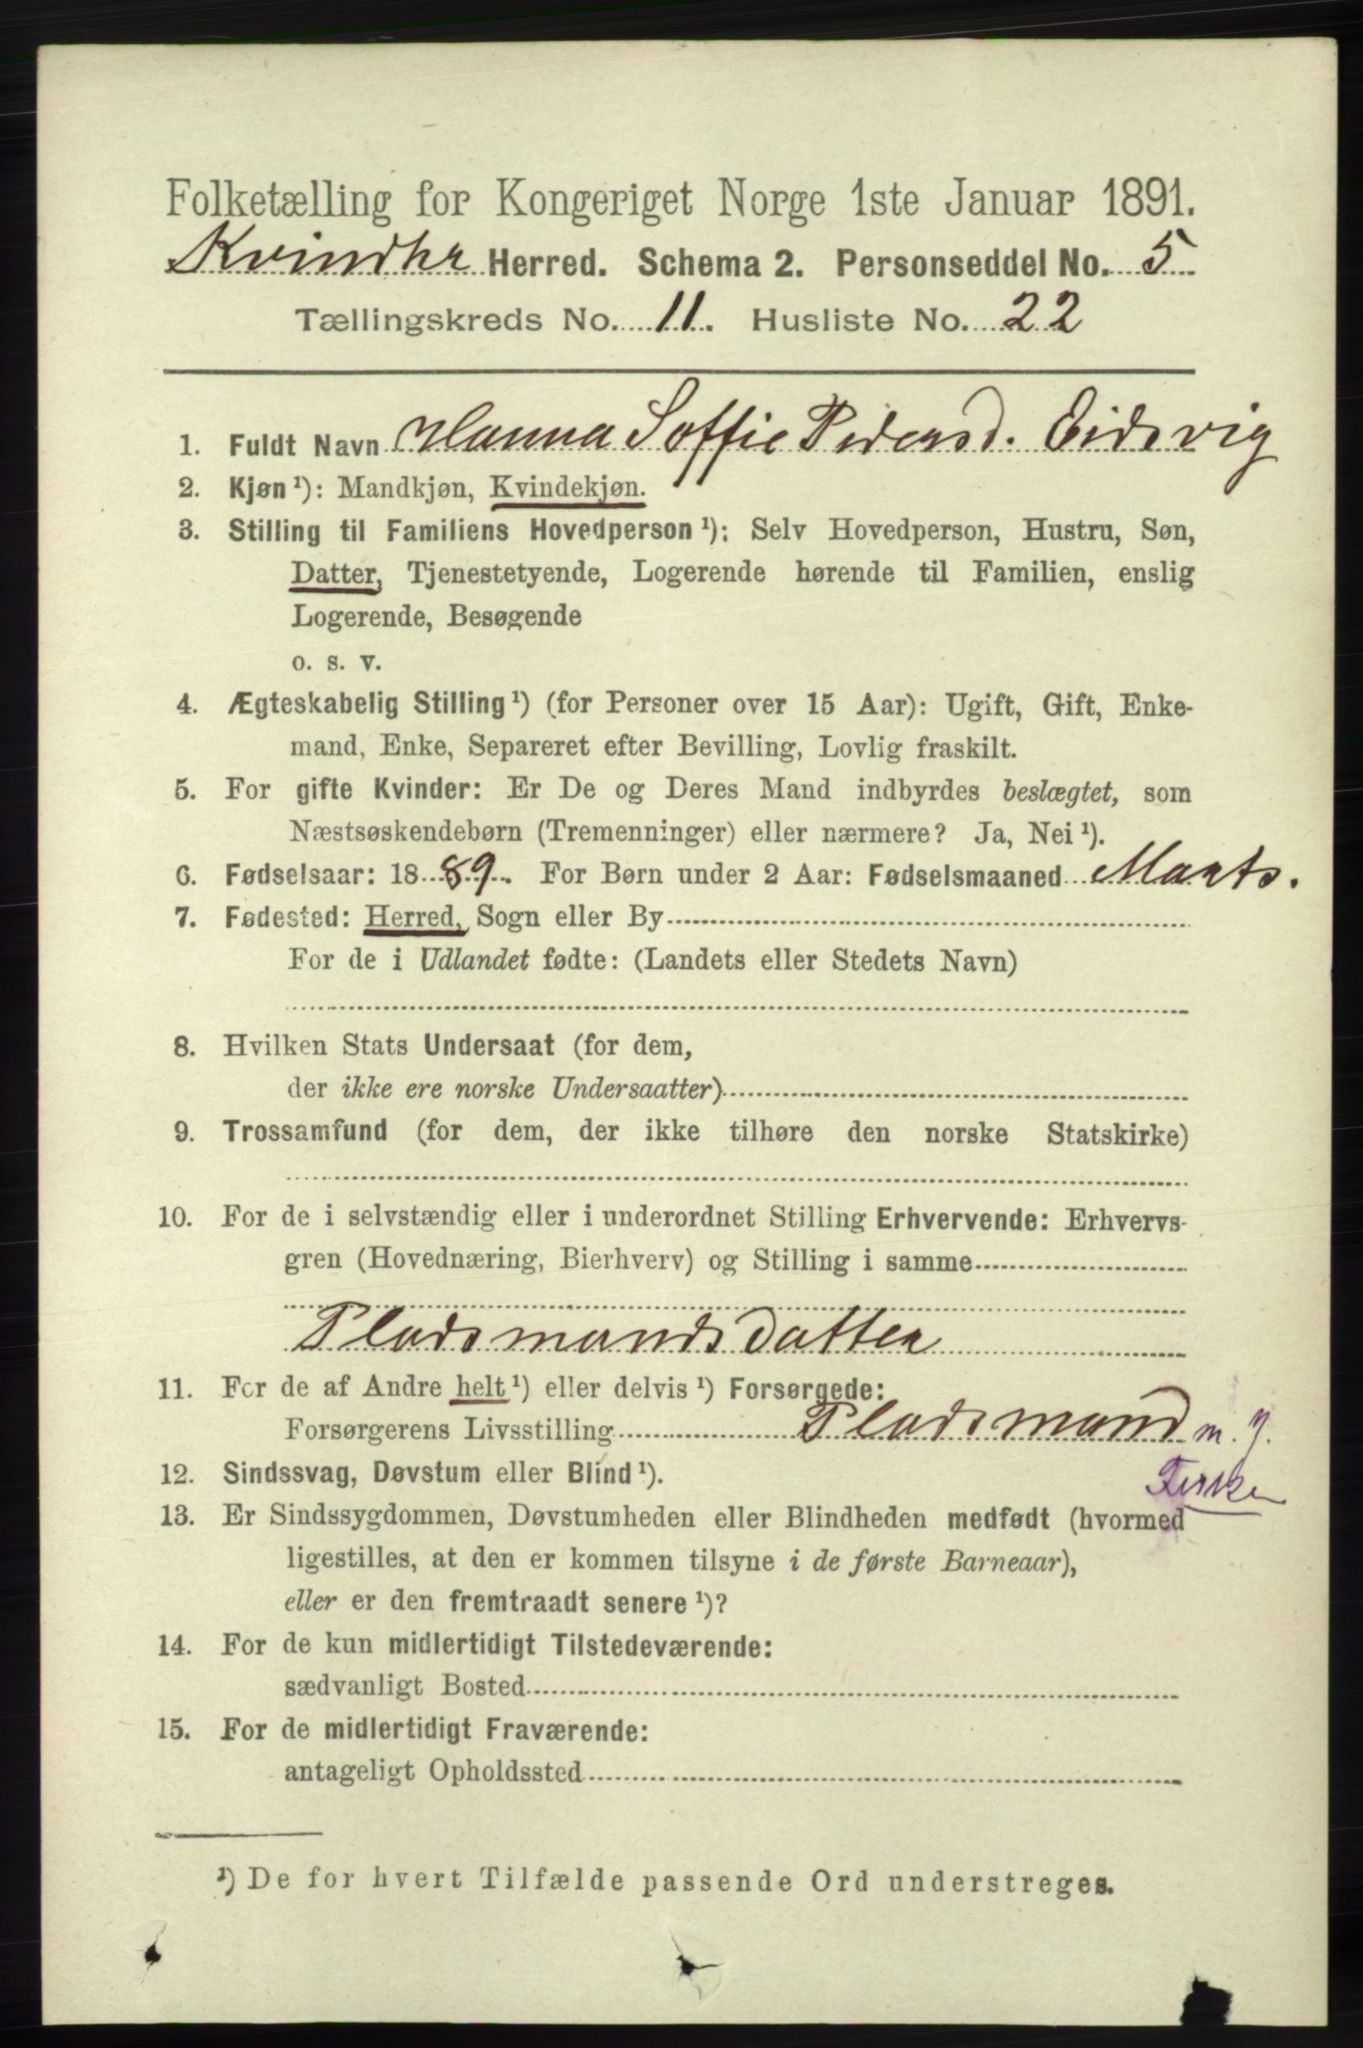 Folketælling for Kongeriget Norge 1ste Januar 1891.
Kvindhr Herred. Schema 2. Personseddel No. 5
Tællingskreds No. 11. Husliste No. 22
1. Fuldt Navn Hanna Soffie Pedersd. Eidsvig
2. Kjøn ¹): Mandkjøn, Kvindekjøn.
3. Stilling til Familiens Hovedperson ¹): Selv Hovedperson, Hustru, Søn,
Datter, Tjenestetyende, Logerende hørende til Familien, enslig
Logerende, Besøgende
o. s. v.
4. Ægteskabelig Stilling ¹) (for Personer over 15 Aar): Ugift, Gift, Enke-
mand, Enke, Separeret efter Bevilling, Lovlig fraskilt.
5. For gifte Kvinder: Er De og Deres Mand indbyrdes beslægtet, som
Næstsøskendebørn (Tremenninger) eller nærmere? Ja, Nei ¹).
6. Fødselsaar: 1889. For Børn under 2 Aar: Fødselsmaaned Marts.
7. Fødested: Herred, Sogn eller By
For de i Udlandet fødte: (Landets eller Stedets Navn)
8. Hvilken Stats Undersaat (for dem,
der ikke ere norske Undersaatter)
9. Trossamfund (for dem, der ikke tilhøre den norske Statskirke)
10. For de i selvstændig eller i underordnet Stilling Erhvervende: Erhvervs-
gren (Hovednæring, Bierhverv) og Stilling i samme
Pladsmandsdatter
11. For de af Andre helt ¹) eller delvis ¹) Forsørgede:
Forsørgerens Livsstilling Pladsmand m. J.
Fisker
12. Sindssvag, Døvstum eller Blind ¹).
13. Er Sindssygdommen, Døvstumheden eller Blindheden medfødt (hvormed
ligestilles, at den er kommen tilsyne i de første Barneaar),
eller er den fremtraadt senere ¹)?
14. For de kun midlertidigt Tilstedeværende:
sædvanligt Bosted
15. For de midlertidigt Fraværende:
antageligt Opholdssted
¹) De for hvert Tilfælde passende Ord understreges.